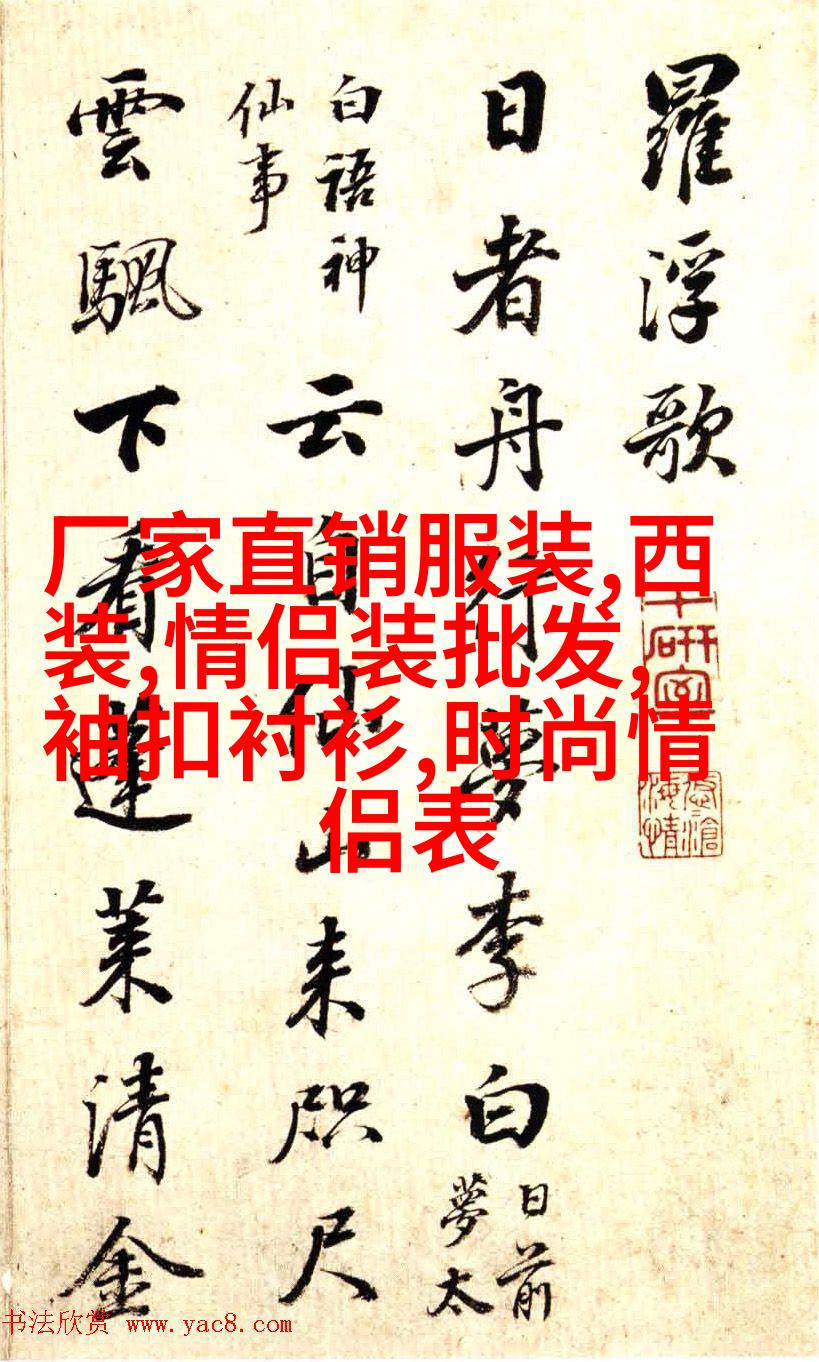 羅浮歌
日者舟行夢李白
日前
夢太
白語神
仙事
云自仙山来咫尺
雲颿下看蓬莱清金
厂家直销服装,西
装,情侣装批发,
袖扣衬衫,时尚情
侣表
书法欣赏 www.yac8.com